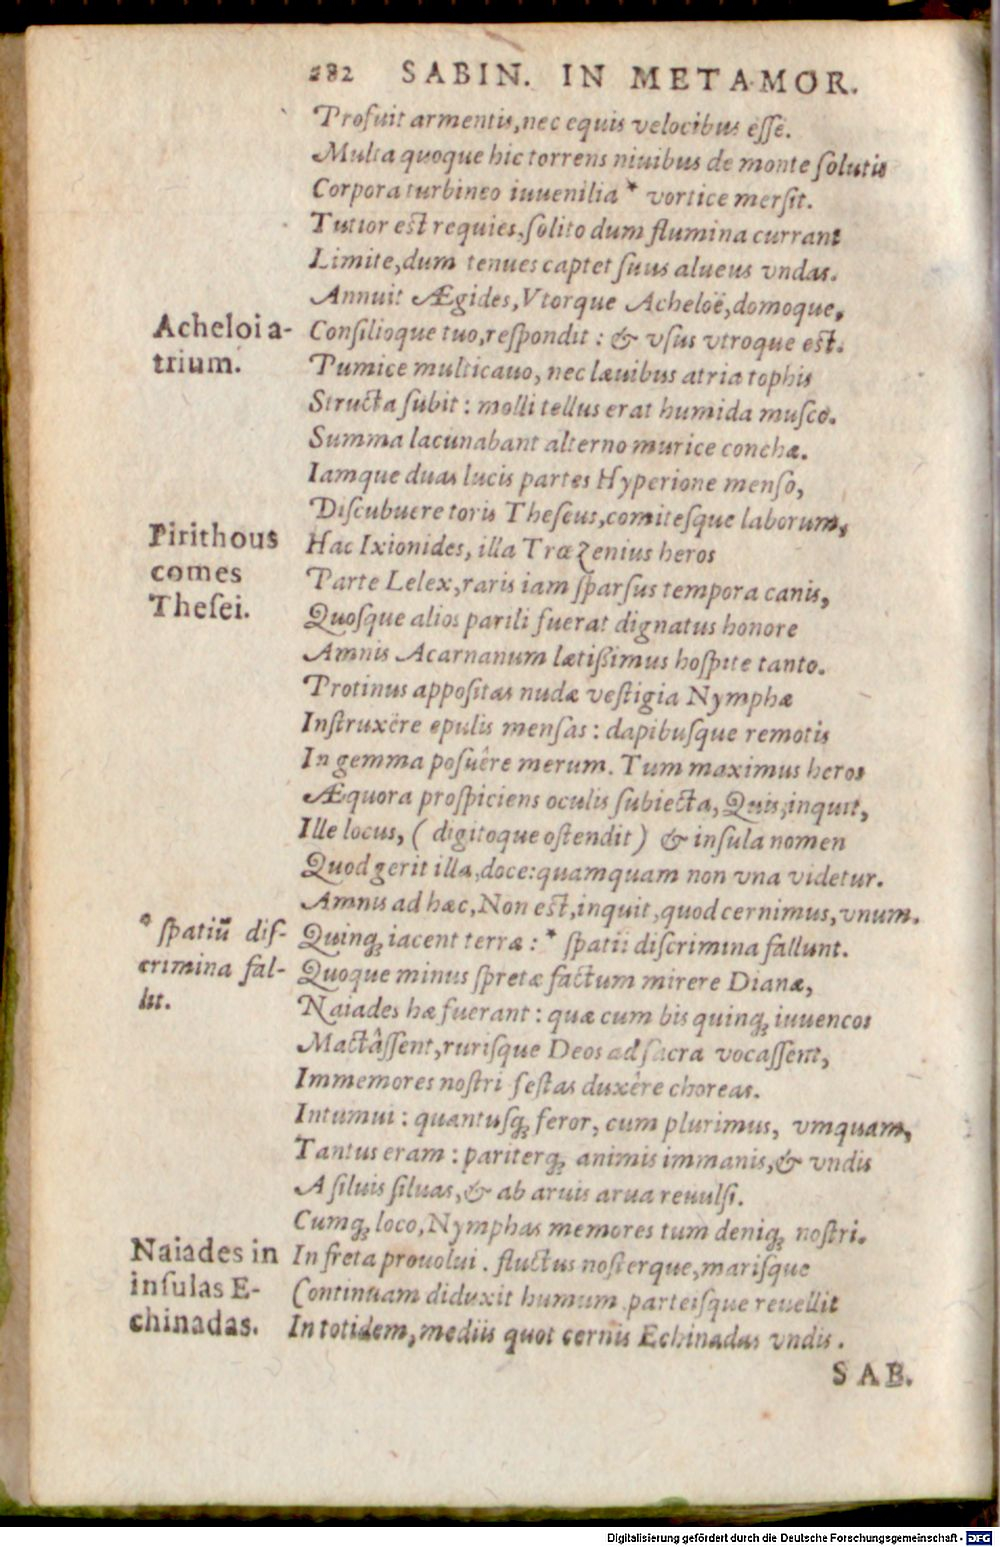 282 SABIN. IN METAMOR.
Profuit armentis, nec equis velocibus esse.
Multa quoque hic torrens niuibus de monte solutis
Corpora turbineo iuuenilia * vortice mersit.
Tutior est requies, solito dum flumina currant
Limite, dum tenues captet suus alueus vndas.
Annuit Ægides, Vtorque Acheloë, domoque,
Acheloi a-
trium.
Consilioque tuo, respondit : & vsus vtroque est.
Pumice multicauo, nec læuibus atria tophis
Structa subit : molli tellus erat humida musco.
Summa lacunabant alterno murice conchæ.
Iamque duas lucis partes Hyperione menso,
Discubuere toris Theseus, comitesque laborum,
Pirithous
comes
Thesei.
Hac Ixionides, illa Træzenius heros
Parte Lelex, raris iam sparsus tempora canis,
Quosque alios parili fuerat dignatus honore
Amnis Acarnanum lætissimus hospite tanto.
Protinus appositas nudæ vestigia Nymphæ
Instruxêre epulis mensas : dapibusque remotis
In gemma posuêre merum. Tum maximus heros
Æquora prospiciens oculis subiecta, Quis, inquit,
Ille locus, ( digitoque ostendit ) & insula nomen
Quod gerit illa, doce: quamquam non vna videtur.
Amnis ad hæc, Non est, inquit, quod cernimus, vnum.
* spatiũ dis-
crimina fal-
lit.
Quinq; iacent terræ : * spatii discrimina fallunt.
Quoque minus spretæ factum mirere Dianæ,
Naiades hæ fuerant : quæ cum bis quinq; iuuencos
Mactâssent, rurisque Deos ad sacra vocassent,
Immemores nostri festas duxêre choreas.
Intumui : quantusq; feror, cum plurimus, vmquam,
Tantus eram : pariterq; animis immanis, & vndis
A siluis siluas, & ab aruis arua reuulsi.
Cumq; loco, Nymphas memores tum deniq; nostri.
Naiades in
insulas E-
chinadas.
In freta prouolui . fluctus nosterque, marisque
Continuam diduxit humum parteisque reuellit
In totidem, mediis quot cernis Echinadas vndis .
SAB.
Digitalisierung gefördert durch die Deutsche Forschungsgemeinschaft - DFG